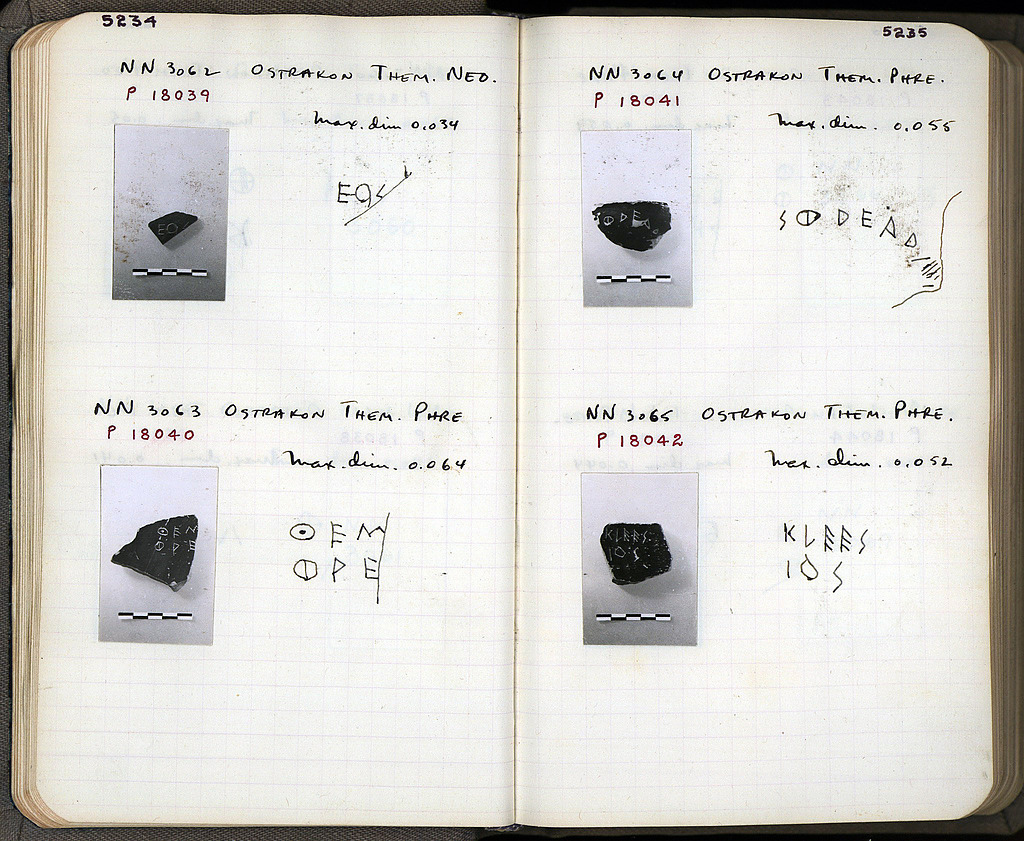 5234
NN 3062 OSTRAKON THEM. NEO.
P 18039
Max. dim 0.034
ΕΟΣ
NN 3063 OSTRAKON THEM. PHRE
P 18040
Max. dim. 0.064
ΘΕΜ
ΦΡΕ
5235
NN 3064 OSTRAKON THEM. PHRE.
P 18041
Max. dim. 0.055
NN 3065 OSTRAKON THEM. PHRE.
P 18042
Max. dim. 0.052